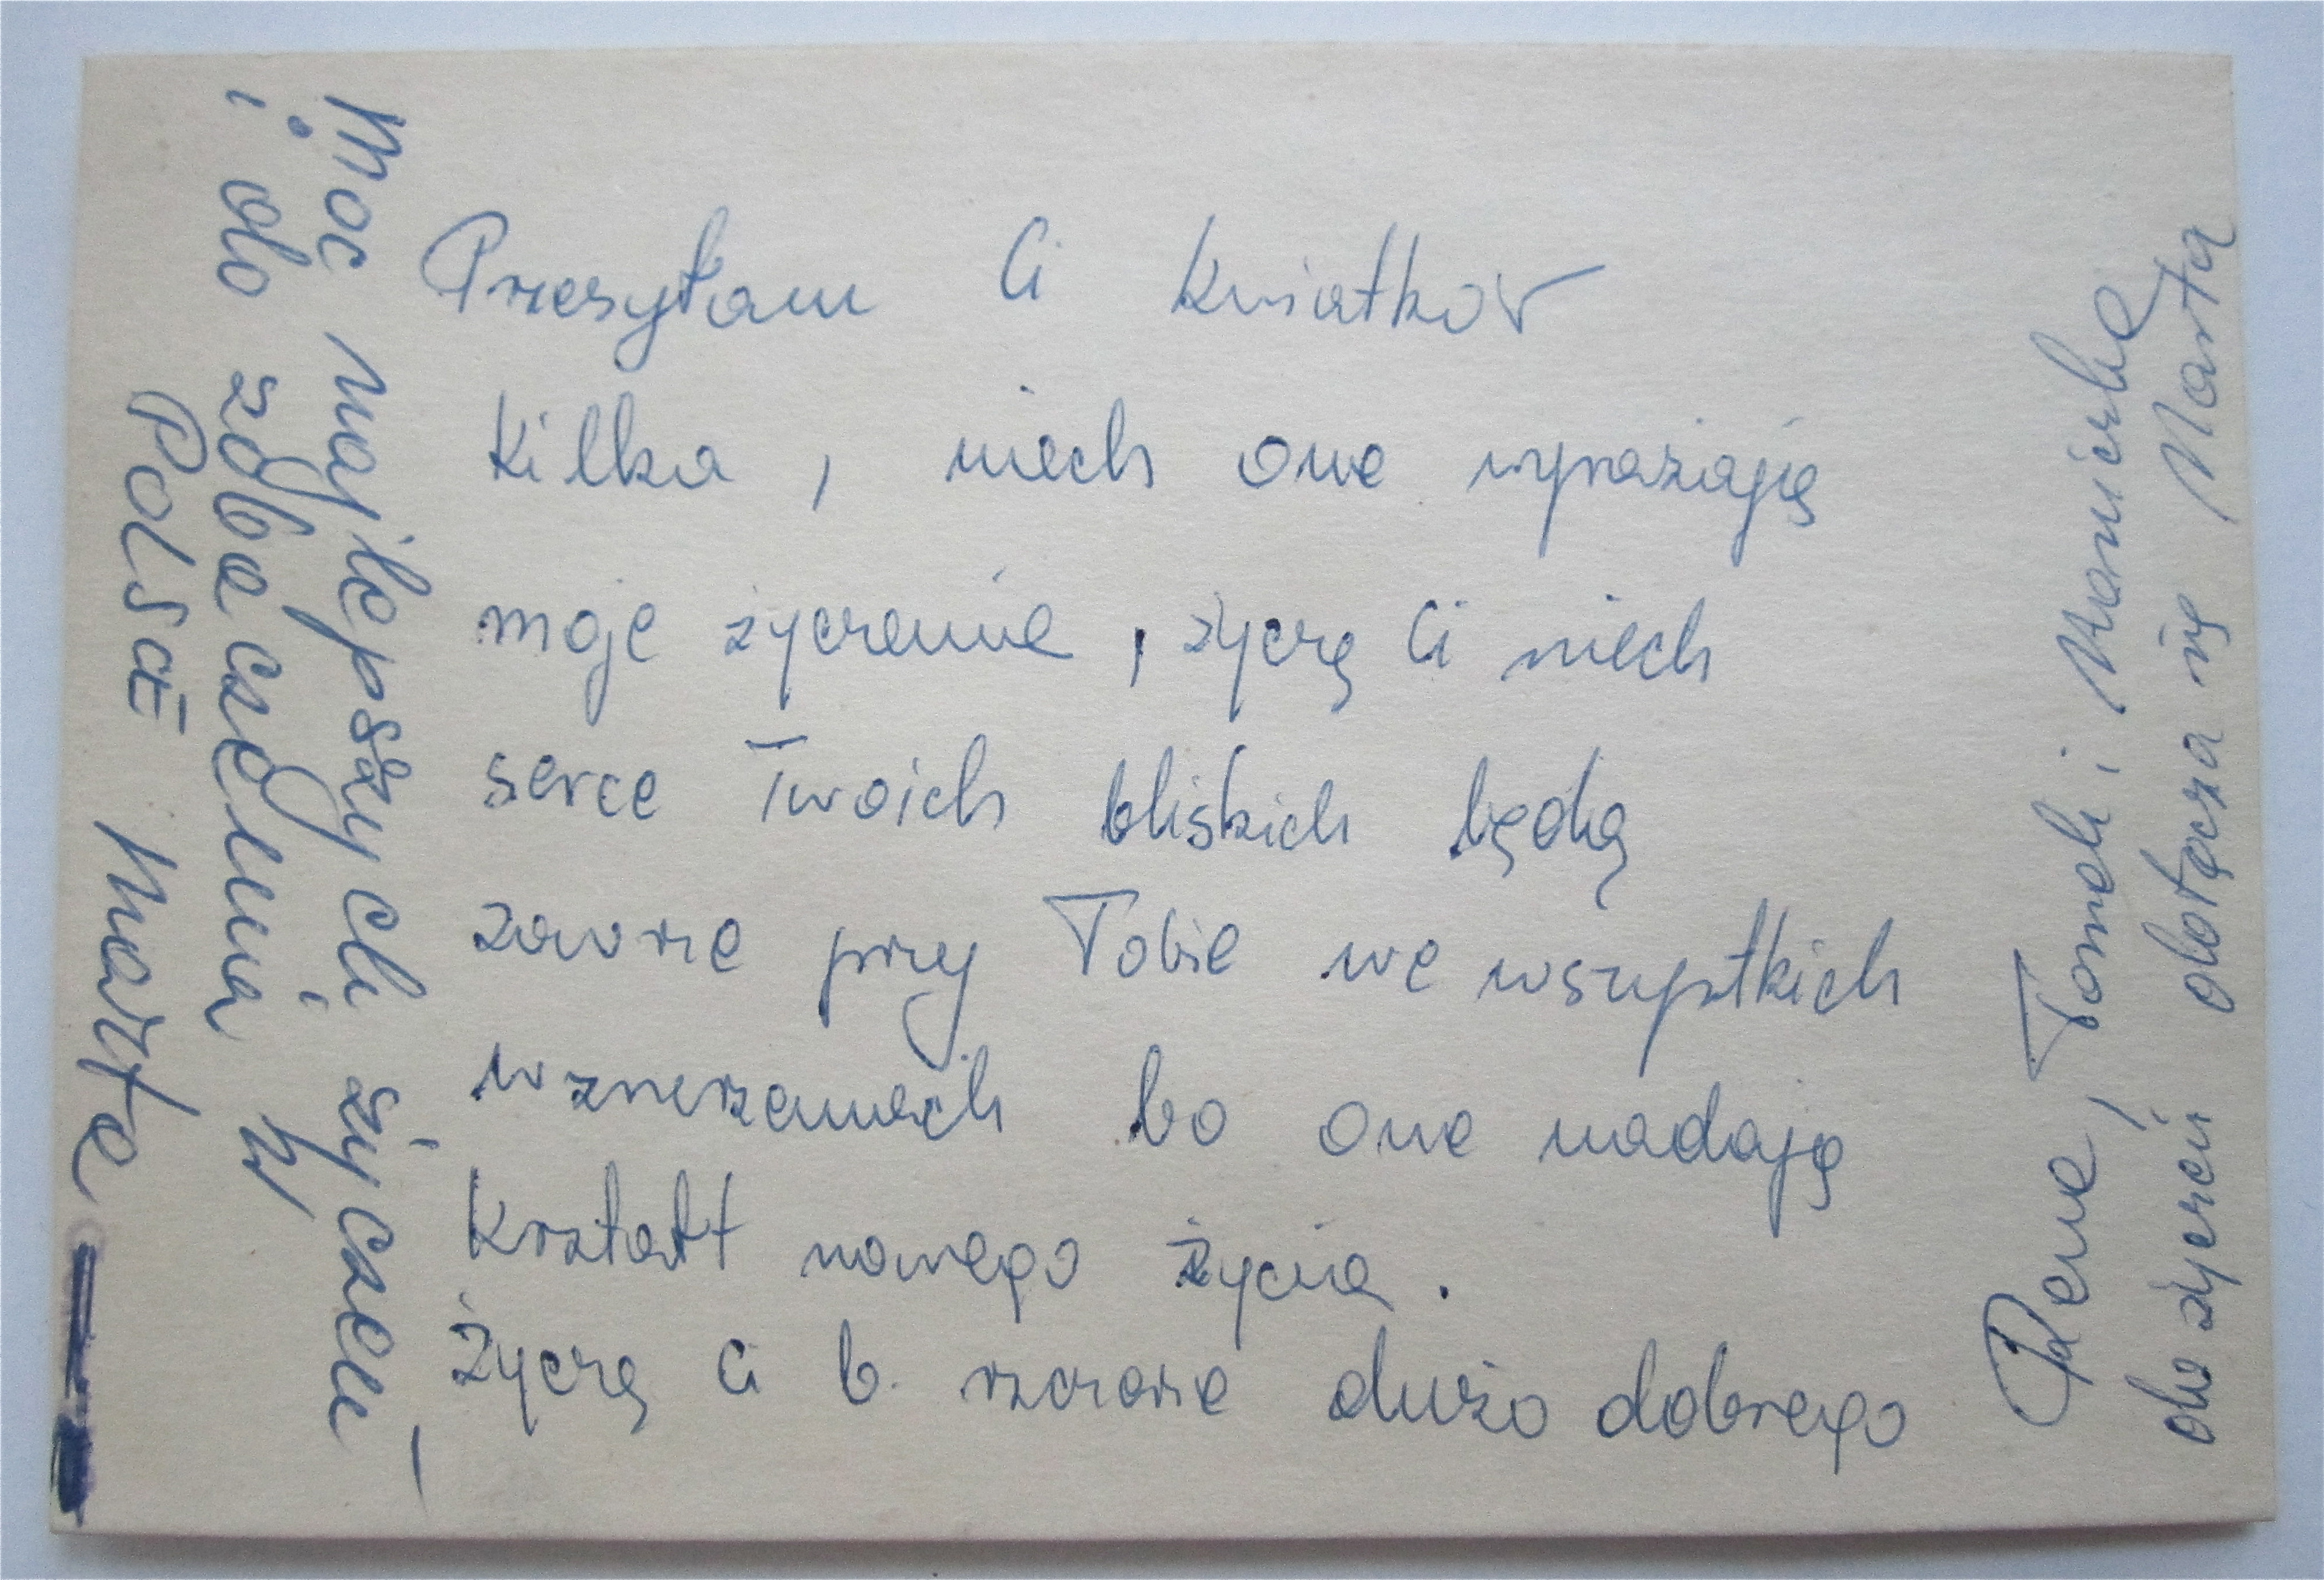 Przesyłam Ci kwiatków
kilka, niech one wyrażają
moje życzenia, życzę Ci niech
serce Twoich bliskich będą
zawsze przy Tobie we wszystkich
bo one nadają
kształt nowego życia.
Życzę Ci b. dużo dobrego
Moc najlepszych życzeń,
i do zobaczenia w
Polsce Marta
Tomek i
do życzeń dołącza się Marta